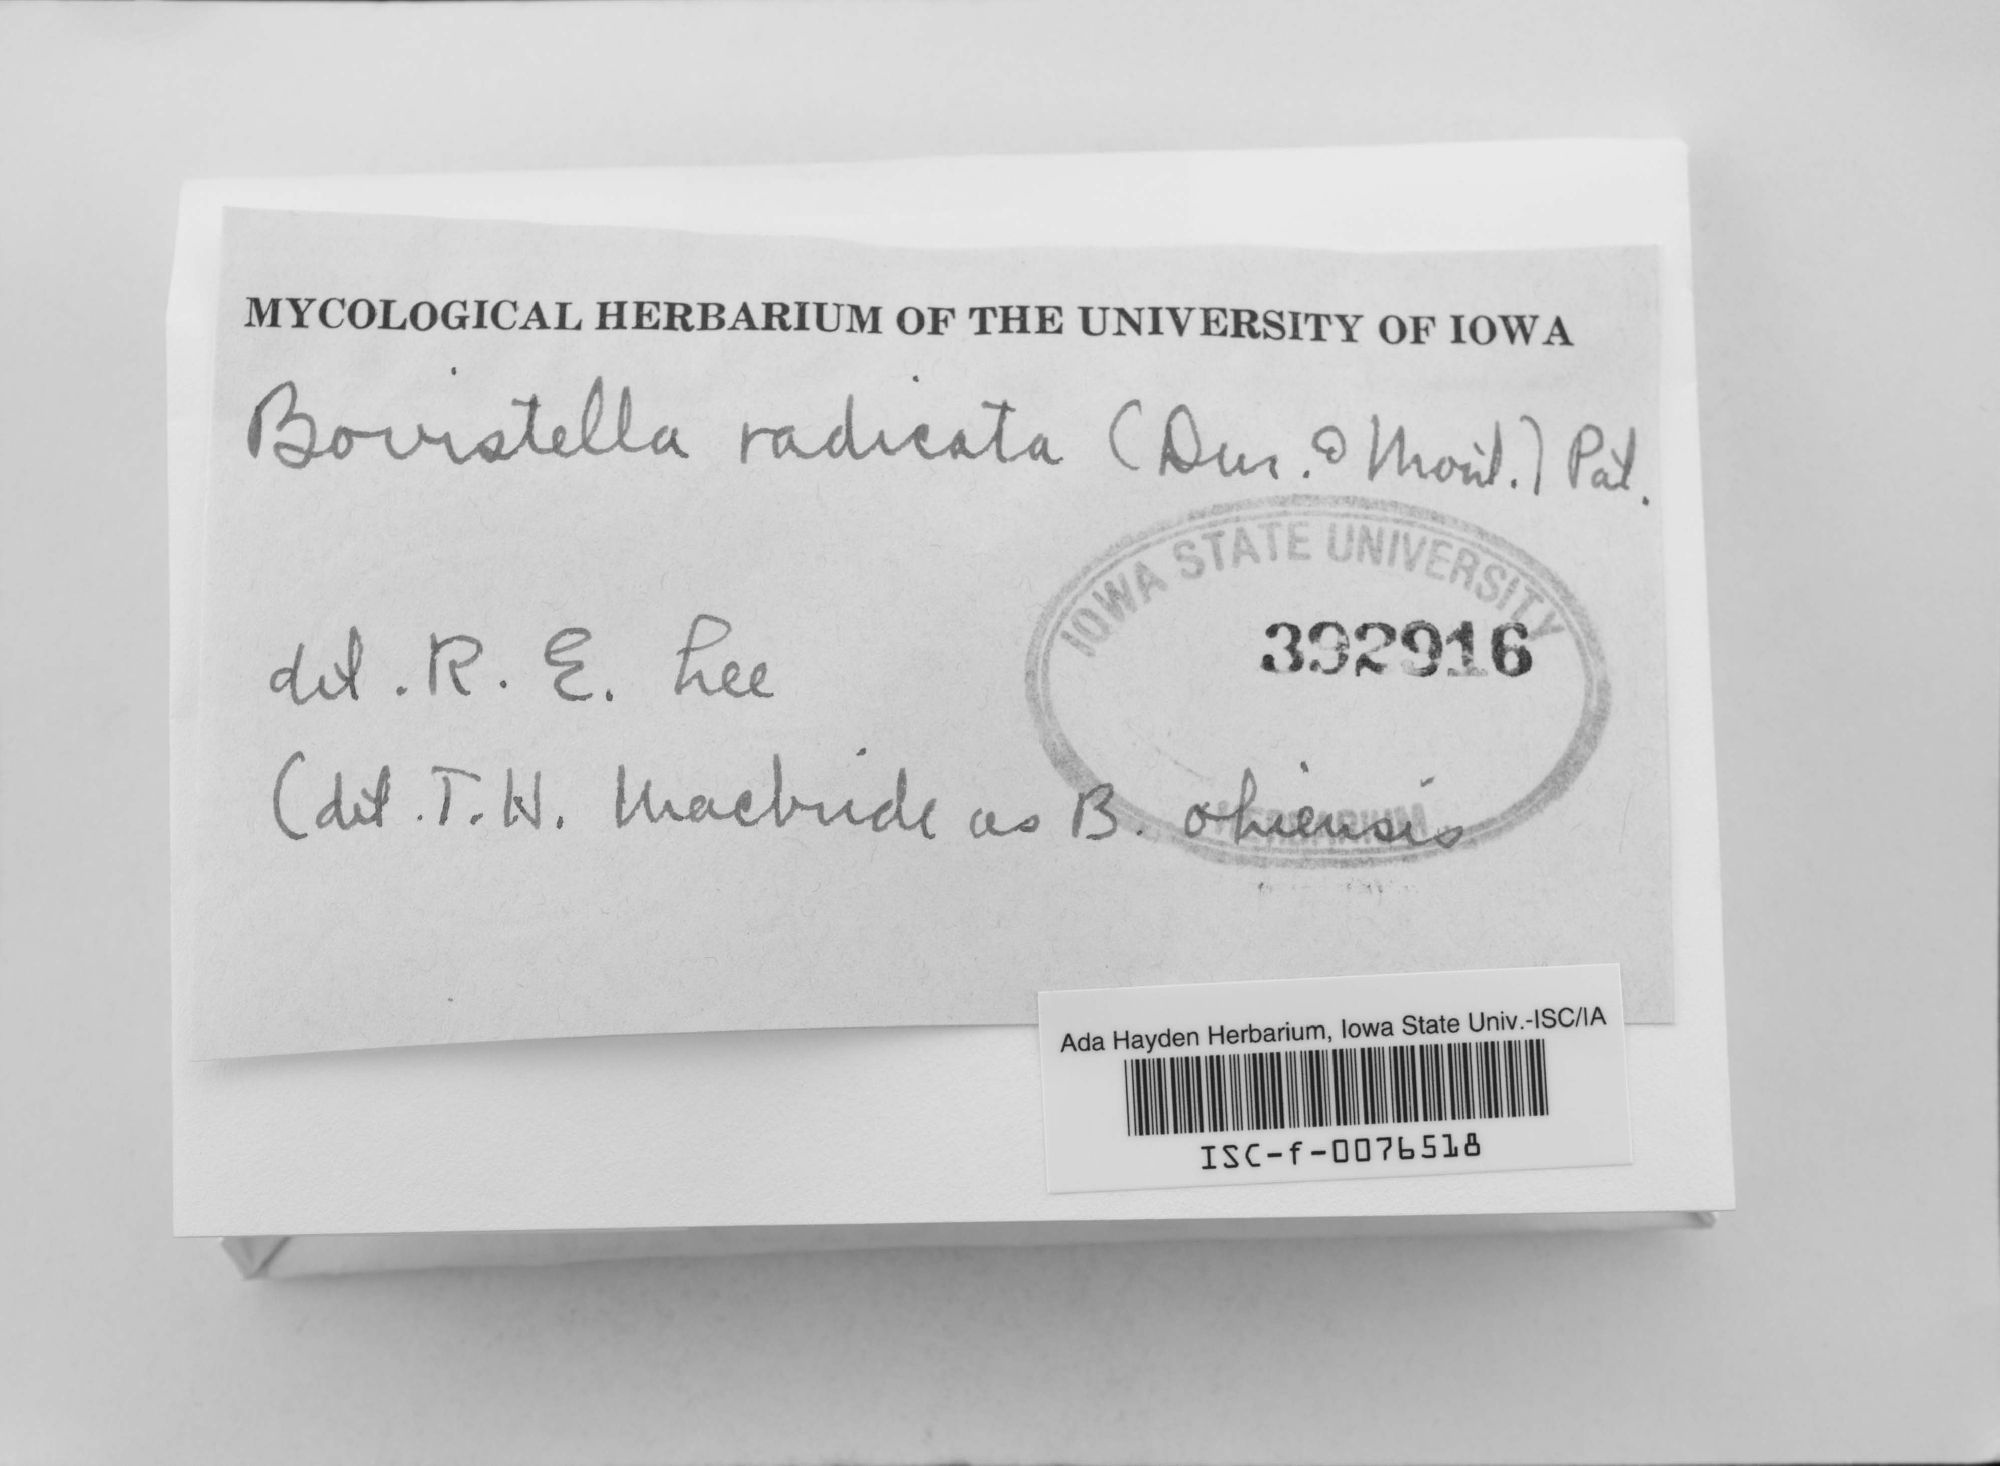 MYCOLOGICAL HERBARIUM OF THE UNIVERSITY OF IOWA
Bovistella radicata (Dur. & Mont.) Pat.
IOWA STATE UNIVERSITY
392916
det. R. E. Lee
(det. T. H. Macbride as B. ohiensis
HERBARIUM
Ada Hayden Herbarium, Iowa State Univ.-ISC/IA
ISC-f-0076518